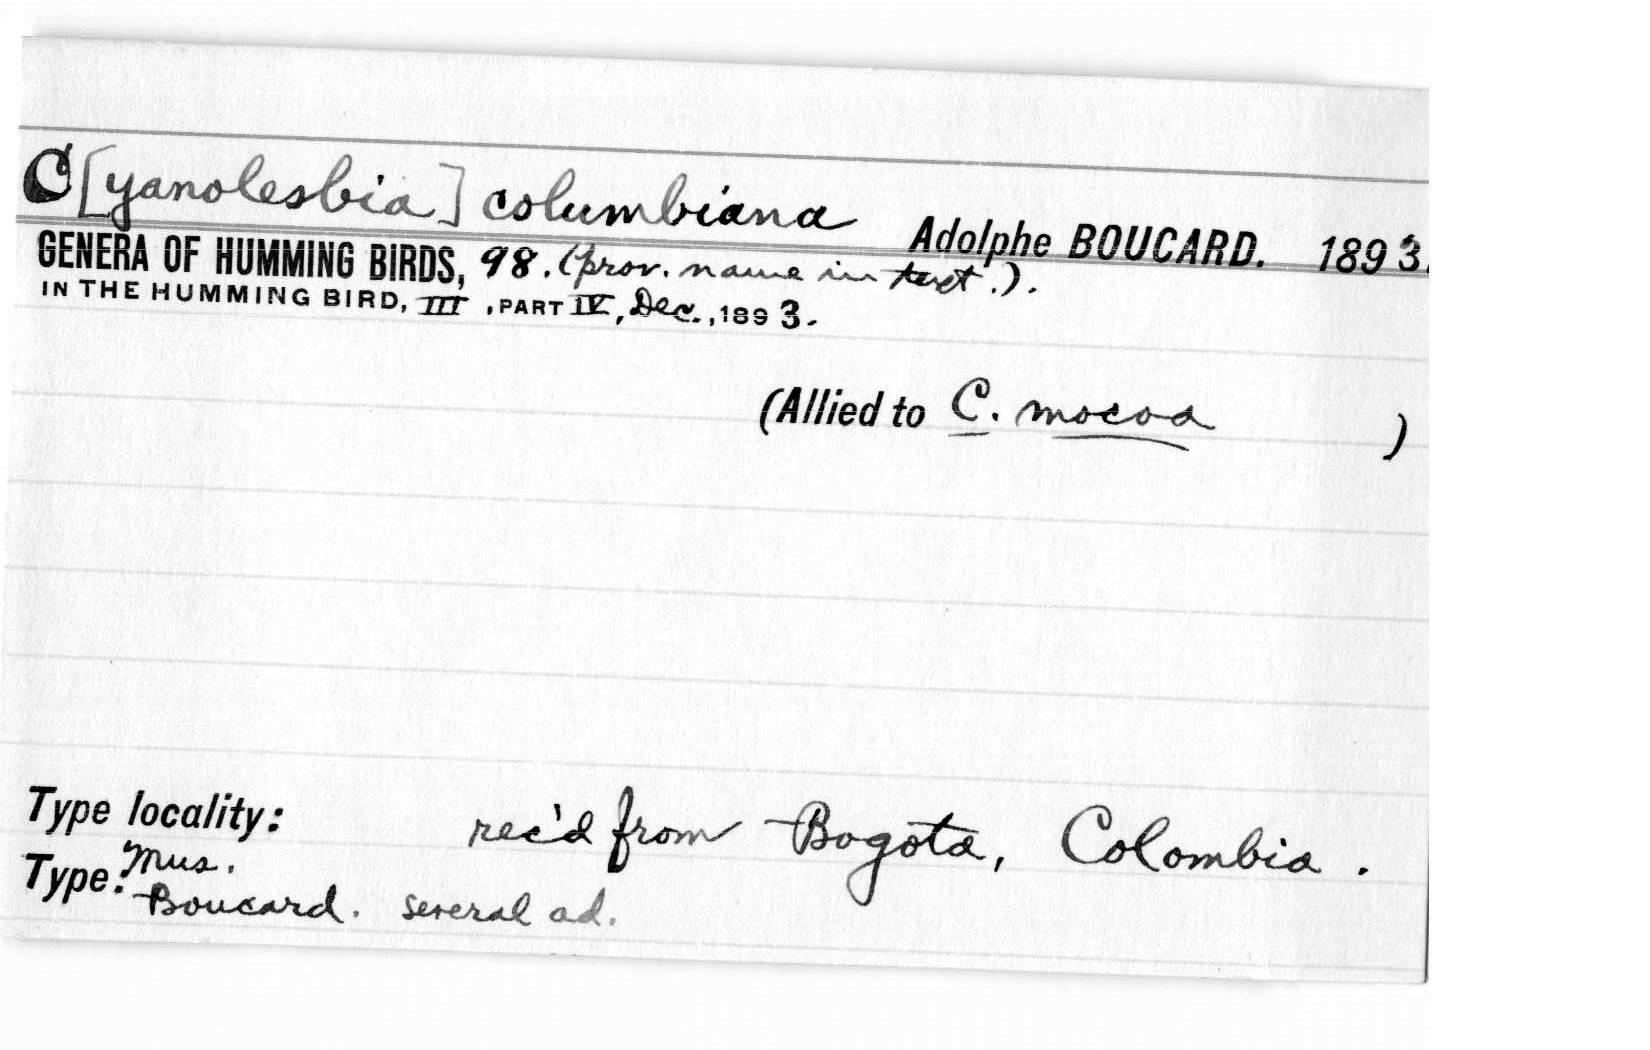 C[yanolesbia] columbiana Adolphe BOUCARD. 1893.
GENERA OF HUMMING BIRDS, 98. (prov. name in text.).
IN THE HUMMING BIRD, III, PART IV, Dec., 1893.
(Allied to C. mocoa )
Type locality: rec'd from Bogota, Colombia.
Type: Mus.
Boucard. several ad.